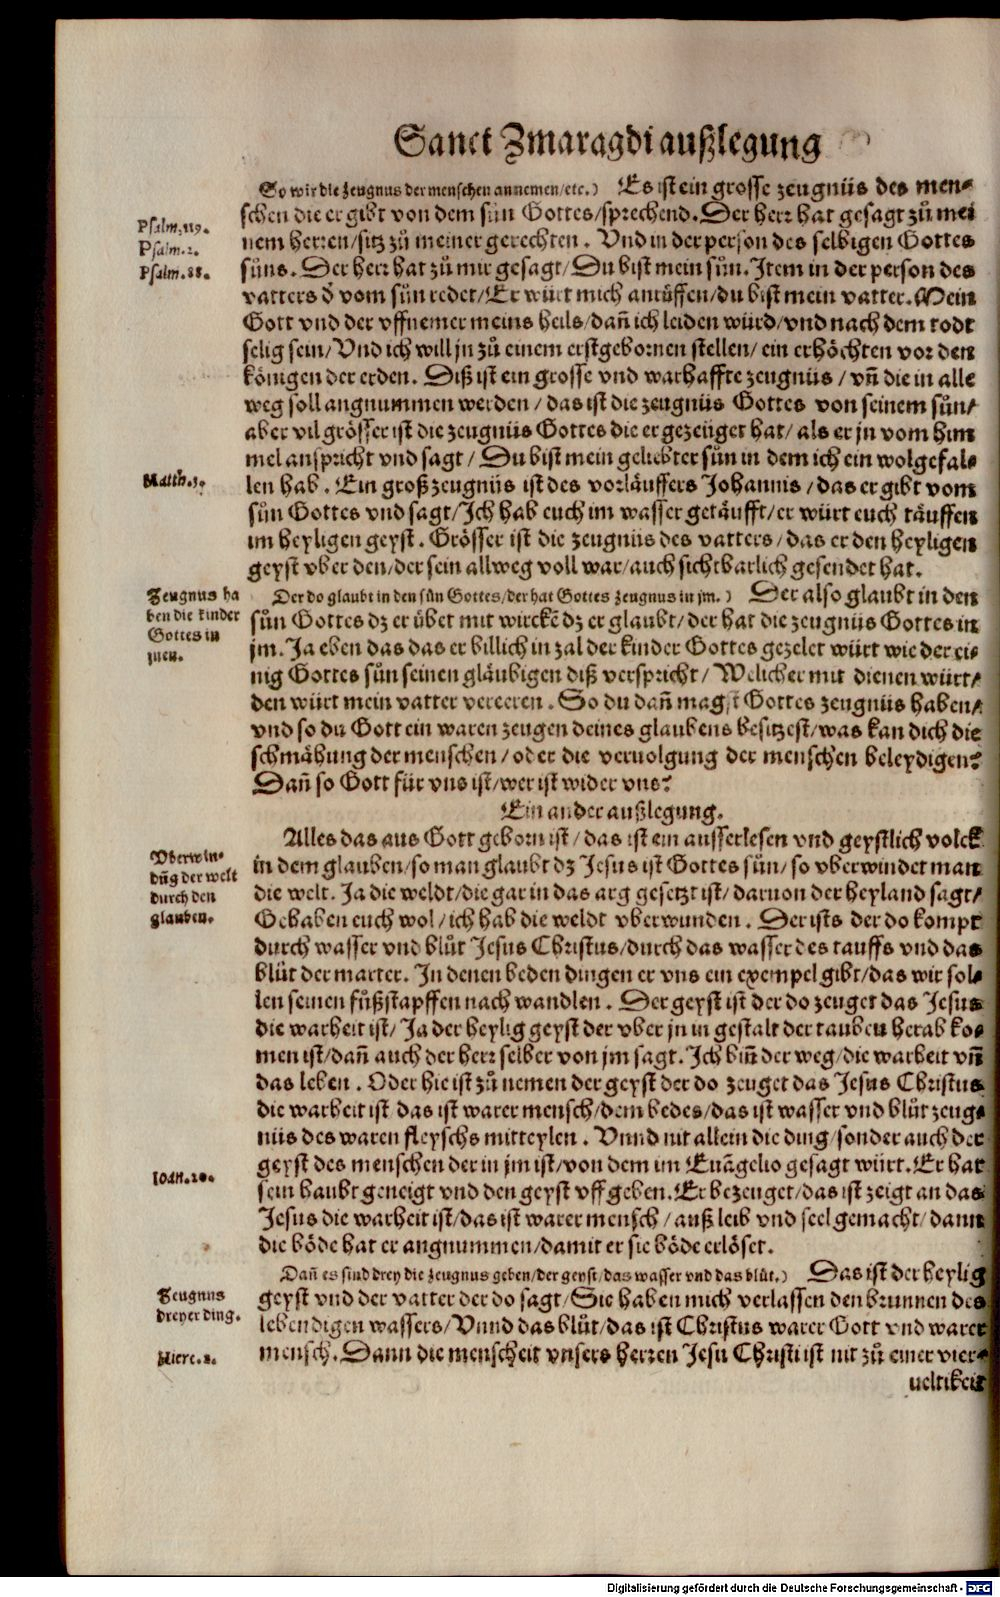 Sanct Zmaragdi außlegung
So wir die zeugnus der menschen annemen/etc.) Es ist ein grosse zeugnüs des men-
schen die er gibt von dem sün Gottes/sprechend. Der herr hat gesagt zů mei
Psalm.119.
nem herren/sitz zů meiner gerechten. Vnd in der person des selbigen Gottes
Psalm.2.
süns. Der herr hat zů mir gesagt/Du bist mein sün. Item in der person des
Psalm.88.
vatters d' vom sün redet/Er würt mich anrüffen/du bist mein vatter. Mein
Gott vnd der vffnemer meins heils/dañ ich leiden würd/vnd nach dem todt
selig sein/Vnd ich will jn zů einem erstgebornen stellen/ein erhöchten vor den
königen der erden. Diß ist ein grosse vnd warhaffte zeugnüs/vñ die in alle
weg soll angnummen werden/das ist die zeugnüs Gottes von seinem sün/
aber vil grösser ist die zeugnüs Gottes die er gezeüget hat/als er jn vom him
mel anspricht vnd sagt/Du bist mein geliebter sün in dem ich ein wolgefal-
Matth.3.
len hab. Ein groß zeugnüs ist des vorläuffers Johannis/das er gibt vom
sün Gottes vnd sagt/Ich hab euch im wasser getäufft/er würt euch täuffen
im heyligen geyst. Grösser ist die zeugnüs des vatters/das er den heyligen
geyst vber den/der sein allweg voll war/auch sichtbarlich gesendet hat.
Zeugnus ha
ben die kinder
Gottes in
jnen.
Der do glaubt in den sün Gottes/der hat Gottes zeugnus in jm.) Der also glaubt in den
sün Gottes dz er übet mit wirckẽ dz er glaubt/der hat die zeugnüs Gottes in
jm. Ja eben das das er billich in zal der kinder Gottes gezelet würt wie der ei-
nig Gottes sün seinen gläubigen diß verspricht/Welicher mit dienen würt/
den würt mein vatter vereeren. So du dañ magst Gottes zeugnüs haben/
vnd so du Gott ein waren zeugen deines glaubens besitzest/was kan dich die
schmähung der menschen/oder die veruolgung der menschen beleydigen?
Dañ so Gott für vns ist/wer ist wider vns?
Ein ander außlegung.
Alles das aus Gott geborn ist/das ist ein ausserlesen vnd geystlich volck
Vberwin-
dũg der welt
durch den
glauben.
in dem glauben/so man glaubt dz Jesus ist Gottes sün/so vberwindet man
die welt. Ja die weldt/die gar in das arg gesetzt ist/daruon der heyland sagt/
Gehaben euch wol/ich hab die weldt vberwunden. Der ists der do kompt
durch wasser vnd blůt Jesus Christus/durch das wasser des tauffs vnd das
blůt der marter. In denen beden dingen er vns ein exempel gibt/das wir sol-
len seinen fůßstapffen nach wandlen. Der geyst ist der do zeuget das Jesus
die warheit ist/Ja der heylig geyst der vber jn in gestalt der tauben herab ko-
men ist/dañ auch der herr selber von jm sagt. Ich biñ der weg/die warheit vñ
das leben. Oder hie ist zů nemen der geyst der do zeuget das Jesus Christus
die warheit ist das ist warer mensch/dem bedes/das ist wasser vnd blůt zeug-
nüs des waren fleyschs mitteylen. Vnnd nit allein die ding/sonder auch der
geyst des menschen der in jm ist/von dem im Euãgelio gesagt würt. Er hat
Ioan.20.
sein haubt geneigt vnd den geyst vffgeben. Er bezeuget/das ist zeigt an das
Jesus die warheit ist/das ist warer mensch/auß leib vnd seel gemacht/dann
die böde hat er angnummen/damit er sie böde erlöset.
Dañ es sind drey die zeugnus geben/der geyst/das wasser vnd das blůt.) Das ist der heylig
Zeugnus
dreyer ding.
geyst vnd der vatter der do sagt/Sie haben mich verlassen den brunnen des
lebendigen wassers/Vnnd das blůt/das ist Christus warer Gott vnd warer
Hiere.2.
mensch. Dann die menscheit vnsers herren Jesu Christi ist nit zů einer vier-
ueltikeit
Digitalisierung gefördert durch die Deutsche Forschungsgemeinschaft - DFG